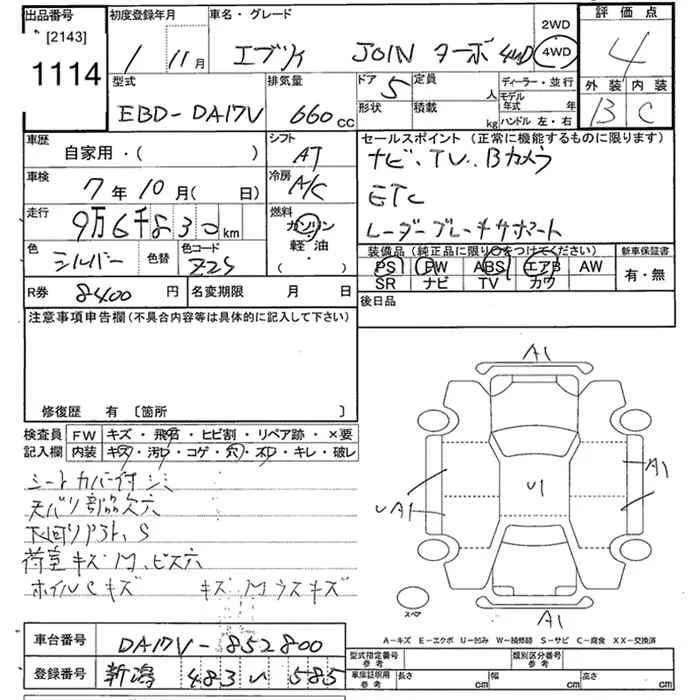 出品番号 初度登録年月 車名・グレード 2WD 評価点
[2143]
1114
1 11月 エブリイ JOIN ターボ 4WD 4WD 4
型式 排気量 ドア 定員 ディーラー・並行 外装 内装
EBD-DA17V 660cc 5 人 モデル年式 年 B C
形状 積載 kg ハンドル 左・右
車歴 シフト セールスポイント (正常に機能するものに限ります)
自家用・( ) AT ナビ・TV・Bカメラ
車検 冷房
7年10月( 日) A/C ETC
走行 燃料
9万6千830km ガソリン レーダーブレーキサポート
色 色替 色コード 軽油 装備品(純正品に限り○をつけてください) 新車保証書
シルバー Z2S ( ・ ) PS PW ABS エアB AW 有・無
SR ナビ TV カワ
R券 8400円 名変期限 月 日 後日品
注意事項申告欄(不具合内容等は具体的に記入して下さい)
修復歴 有 〔箇所 〕
検査員 FW キズ・飛石・ヒビ割・リペア跡・×要
記入欄 内装 キズ・汚レ・コゲ・穴・スレ・キレ・破レ
シートカバー付 シミ
天バリ部品欠穴
下回りサビ、S
荷室キズM、ビス穴
ホイルCキズ キズM ウスキズ
A1
A1
U1
UA1
スペア
A1
A-キズ E-エクボ U-凹み W-補修跡 S-サビ C-腐食 XX-交換済
車台番号 DA17V-852800
型式指定番号 参考 類別区分番号 参考
登録番号 新潟 483 い 585
車庫証明用 参考 長さ cm 幅 cm 高さ cm